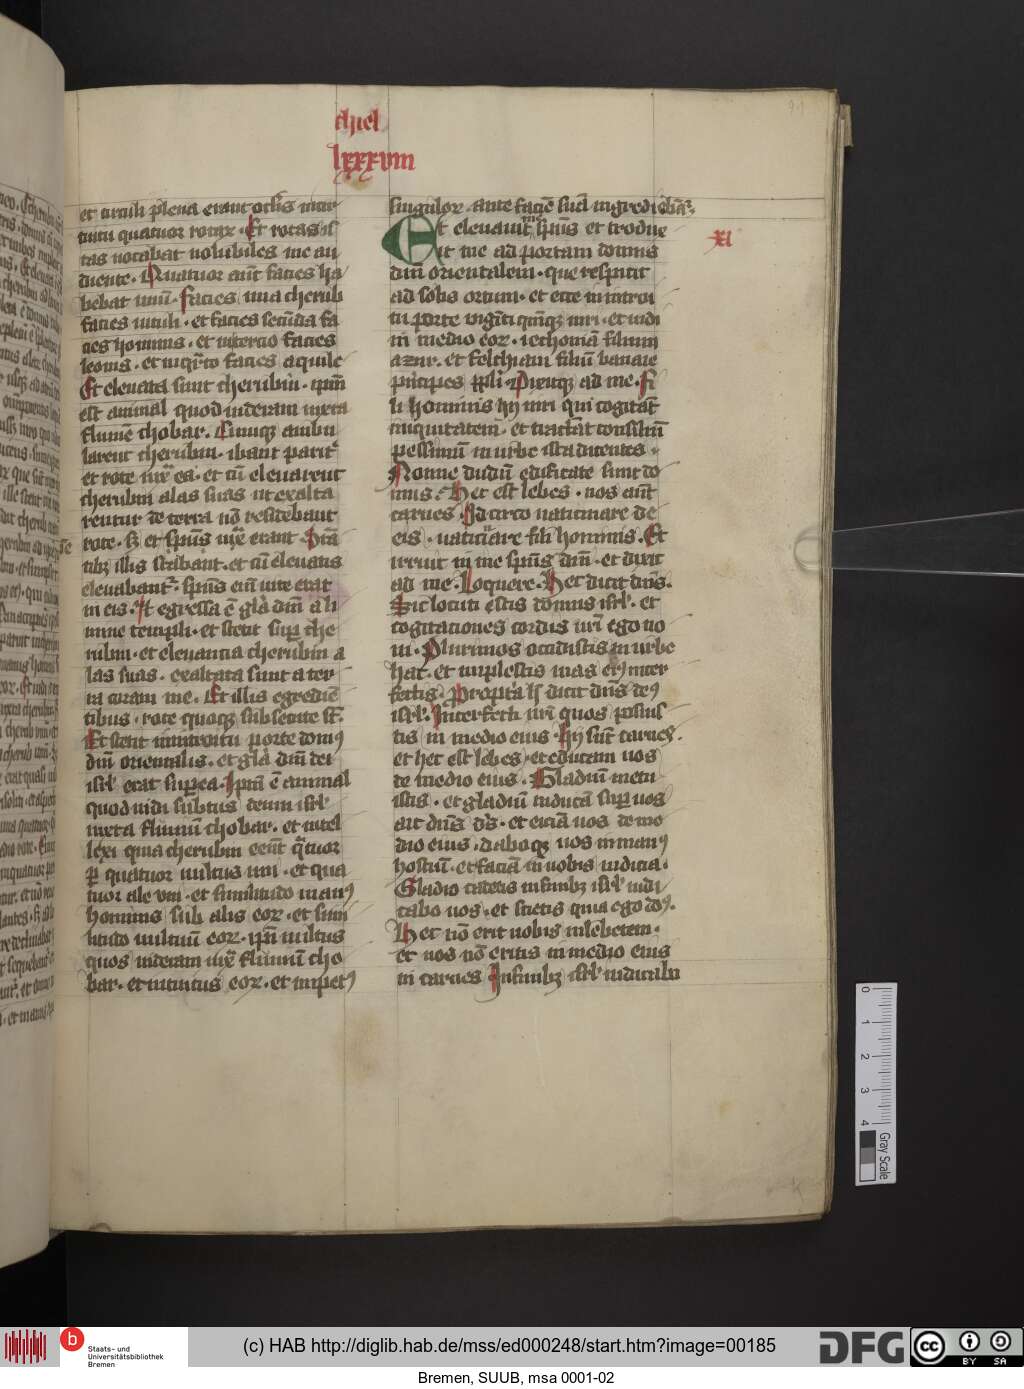 chiel
lxxxviii
et circuli plena erant oclis in cir
cuitu quatuor rotaꝝ. Et rotas is
tas vocabat volubiles me au
diente. Quatuor aut facies ha
bebat unū. facies una cherub
facies vituli. et facies secūda fa
cies hominis. et in tercio facies
leonis. et in qͣrto facies aquile
Et elevata sunt cherubin. ipm̄
est animal quod videram iuxta
flumē chobar. Cumqꝫ ambu
larent cherubin. ibant parit̄
et rote iux̄ ea. et cū elevarent
cherubin alas suas ut exalta
rentur de terra nō residebant
rote. sꝫ et ip̄is iux̄ erant.
tibꝫ illis stabant. et cū elevatis
elevabant̄. sp̄us eni vite erat
in eis. Et egressa ē gl̓a dn̄i a li
mine templi. et stetit sup̄ che
rubin. et elevantia cherubin a
las suas. exaltata sunt a ter
ra coram me. Et illis egrediē
tibus. rote quoqꝫ subsecute st̄.
Et stetit in introitu porte domꝰ
dn̄i orientalis. et gl̓a dn̄i dei
isrl̓ erat sup ea. Ipm̄ ē animal
quod vidi subtus deum isrl̓
iuxta fluviū chobar. et intel
lexi quia cherubin eēnt qͣtuor
ꝑ quatuor vultus uni. et qua
tuor ale uni. et similitudo manꝰ
hominis sub alis eoꝝ. et simi
litudo vultuū eoꝝ. ipi vultus
quos videram iux̄ fluviū cho
bar. et intuitus eoꝝ. et impetꝰ
singuloꝝ ante faciē suā ingredi
Et elevavit me sp̄us et introdux
it me ad portam domus
dn̄i orientalem. que respicit
ad solis ortum. et ecce in introi
tu porte viginti quinqꝫ viri. et vidi
in medio eoꝝ. iechoniā filium
azur. et felchiam filiū banaie
principes ppl̓i. Dixitqꝫ ad me. Fi
li hominis hij viri qui cogitāt
iniquitatem. et tractāt consiliū
pessimū in urbe ista dicentes.
Nonne dudū edificate sunt do
mus. Hec est lebes. nos aut̄
carnes. Idcirco vaticinare de
eis. vaticinare fili hominis. Et
irruit in me sp̄us dn̄i. et dixit
ad me. Loquere. Hec dicit dn̄s.
Sic locuti estis domus isrl̓. et
cogitaciones cordis vr̄i ego no
vi. Plurimos occidistis in urbe
hac. et implestis vias eiꝰ inter
fectis. Propt̓a h̓ dicit dn̄s deꝰ
isrl̓. Interfecti vr̄i quos posuis
tis in medio eius. hij sūt carnes.
et hec est lebes. et educam vos
de medio eius. Gladiū metu
istis. et gladiū inducā sup vos
ait dn̄s ds̄. et eiciā vos de me
dio eius. daboqꝫ vos in manꝰ
hostiū. et faciā in vobis iudicia.
Gladio cadetis in finibꝫ isrl̓ iudi
cabo vos. et scietis quia ego dn̄s.
Hec nō erit vobis in lebetem.
et vos nō eritis in medio eius
in carnes. In finibꝫ isrl̓ iudicabo
xi
0 1 2 3 4
Gray Scale
b
Staats- und
Universitätsbibliothek
Bremen
(c) HAB http://diglib.hab.de/mss/ed000248/start.htm?image=00185
DFG
cc
BY SA
Bremen, SUUB, msa 0001-02